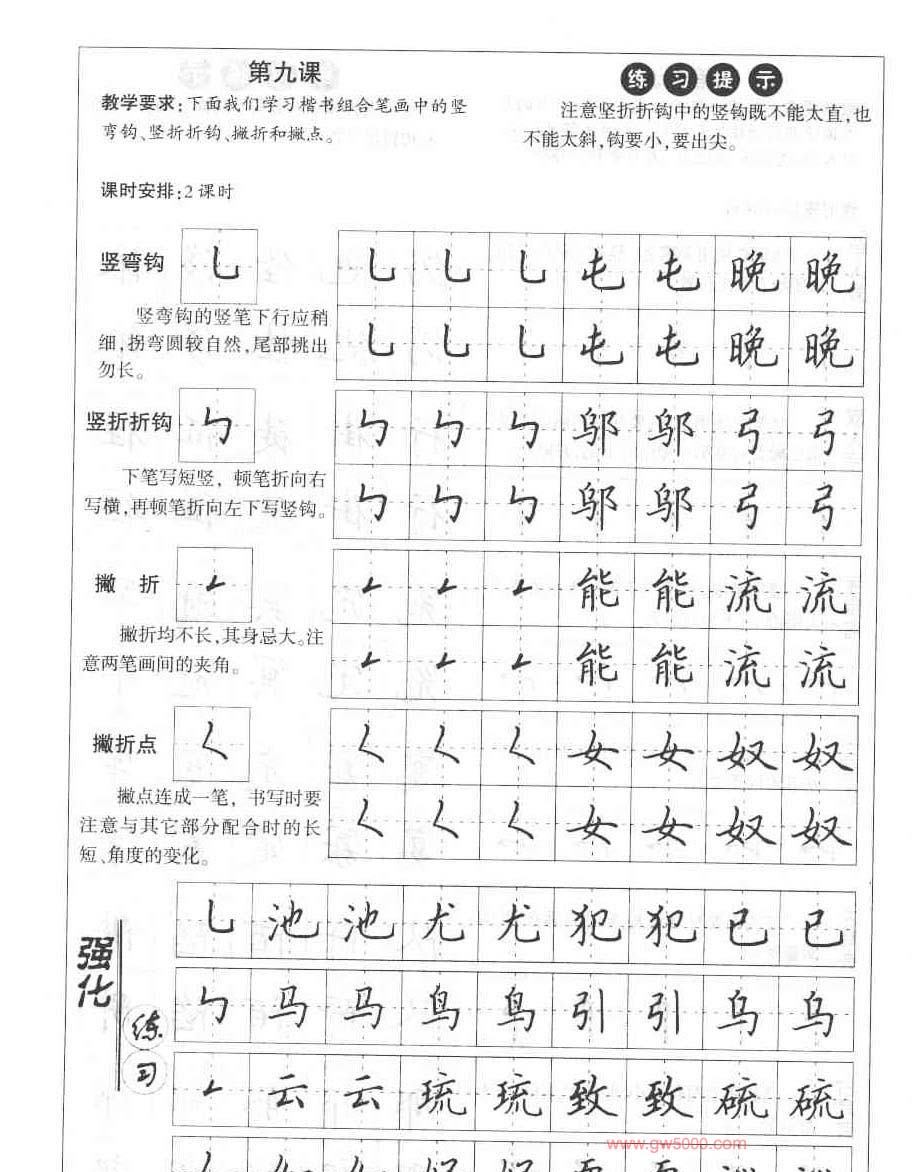 第九课
教学要求:下面我们学习楷书组合笔画中的竖
弯钩、竖折折钩、撇折和撇点。
课时安排:2课时
练习提示
注意坚折折钩中的竖钩既不能太直,也
不能太斜,钩要小,要出尖。
竖弯钩 ㇟
竖弯钩的竖笔下行应稍
细,拐弯圆较自然,尾部挑出
勿长。
㇟ ㇟ ㇟ 屯 屯 晚 晚
㇟ ㇟ ㇟ 屯 屯 晚 晚
竖折折钩 ㇉
下笔写短竖, 顿笔折向右
写横,再顿笔折向左下写竖钩。
㇉ ㇉ ㇉ 邬 邬 弓 弓
㇉ ㇉ ㇉ 邬 邬 弓 弓
撇 折 ㇜
撇折均不长,其身忌大。注
意两笔画间的夹角。
㇜ ㇜ ㇜ 能 能 流 流
㇜ ㇜ ㇜ 能 能 流 流
撇折点 ㇛
撇点连成一笔, 书写时要
注意与其它部分配合时的长
短、角度的变化。
㇛ ㇛ ㇛ 女 女 奴 奴
㇛ ㇛ ㇛ 女 女 奴 奴
强化
练习
㇟ 池 池 尤 尤 犯 犯 已 已
㇉ 马 马 鸟 鸟 引 引 乌 乌
㇜ 云 云 琉 琉 致 致 硫 硫
www.gw5000.com